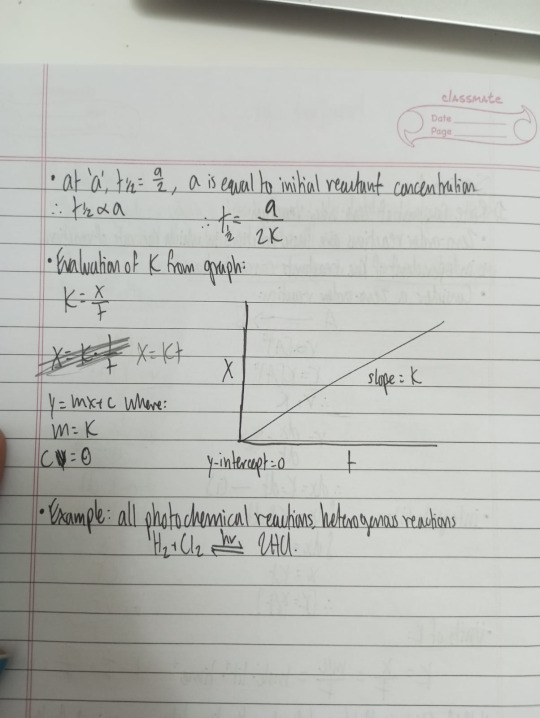 classmate
Date
Page
• at 'a', t½ = a/2, a is equal to initial reactant concentration
∴ t½ ∝ a ∴ t½ = a/2K
• Evaluation of K from graph:
K = x/t
x = Kt
X
slope = K
y = mx + c where:
m = K
c = 0
y-intercept = 0 t
• Example: all photochemical reactions, heterogenous reactions
H₂ + Cl₂ ⇌ hv 2HCl.